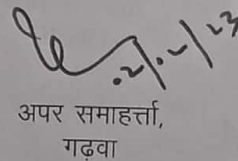 अपर समाहर्त्ता,
गढवा